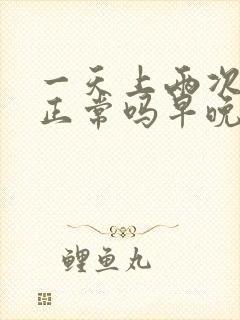 一天上两次
正常吗早晚
鲤鱼丸